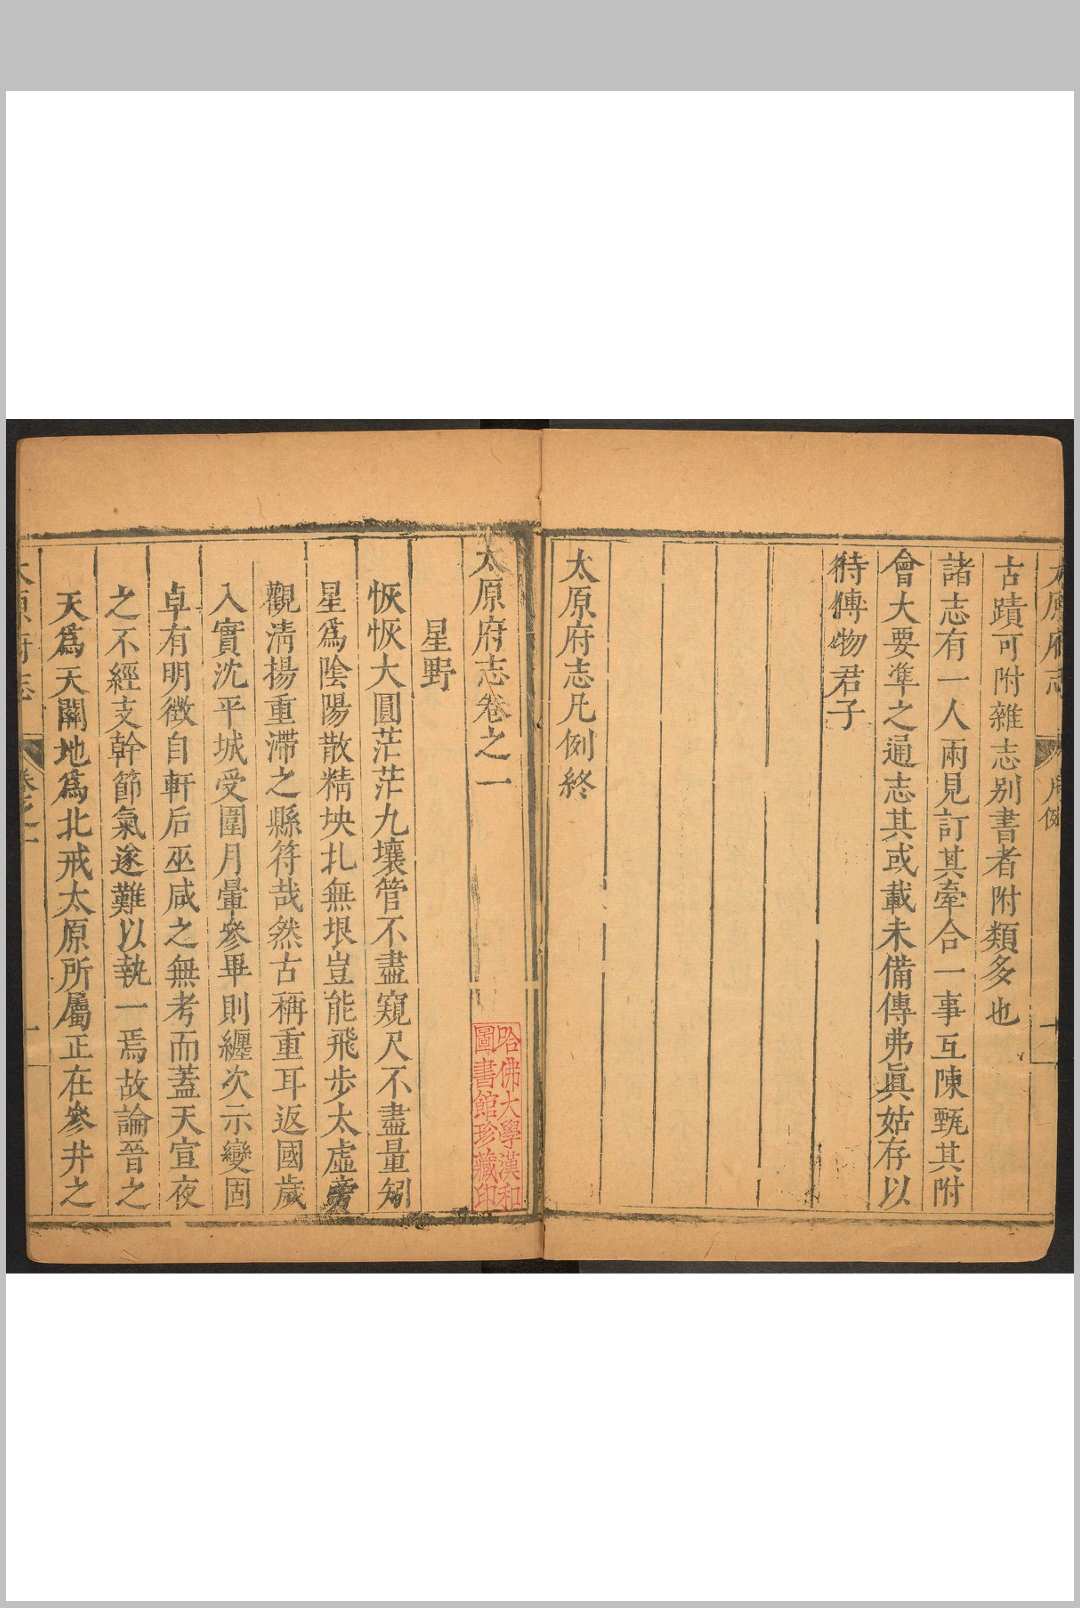 太原府志
凡例
古蹟可附雜志别書者附類多也
諸志有一人兩見訂其牽合一事互陳甄其附
會大要準之通志其或載未備傳弗眞姑存以
待博物君子
太原府志凡例終
太原府志卷之一
哈佛大學漢和
圖書館珍藏印
星野
恢恢大圓茫茫九壤管不盡窺尺不盡量矧
星爲陰陽散精坱圠無垠豈能飛步太虛
觀淸揚重滯之縣符哉然古稱重耳返國歲
入實沈平城受圍月暈參畢則纒次示變固
卓有明徴自軒后巫咸之無考而蓋天宣夜
之不經支幹節氣遂難以執一焉故論晉之
天爲天關地爲北戒太原所屬正在參井之
太原府志
卷之一
一